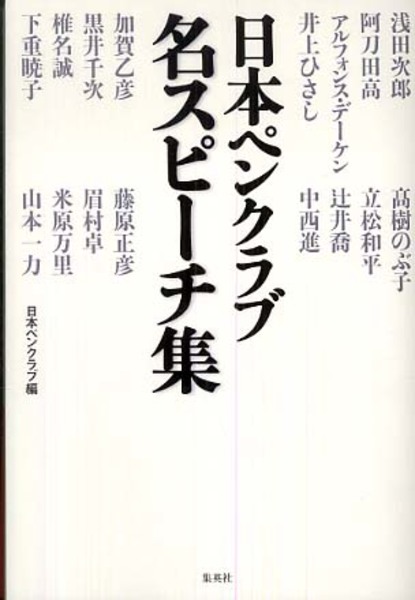 浅田次郎
阿刀田高
アルフォンス・デーケン
井上ひさし
髙樹のぶ子
立松和平
辻井喬
中西進
日本ペンクラブ
名スピーチ集
加賀乙彦
黒井千次
椎名誠
下重暁子
藤原正彦
眉村卓
米原万里
山本一力
日本ペンクラブ編
集英社